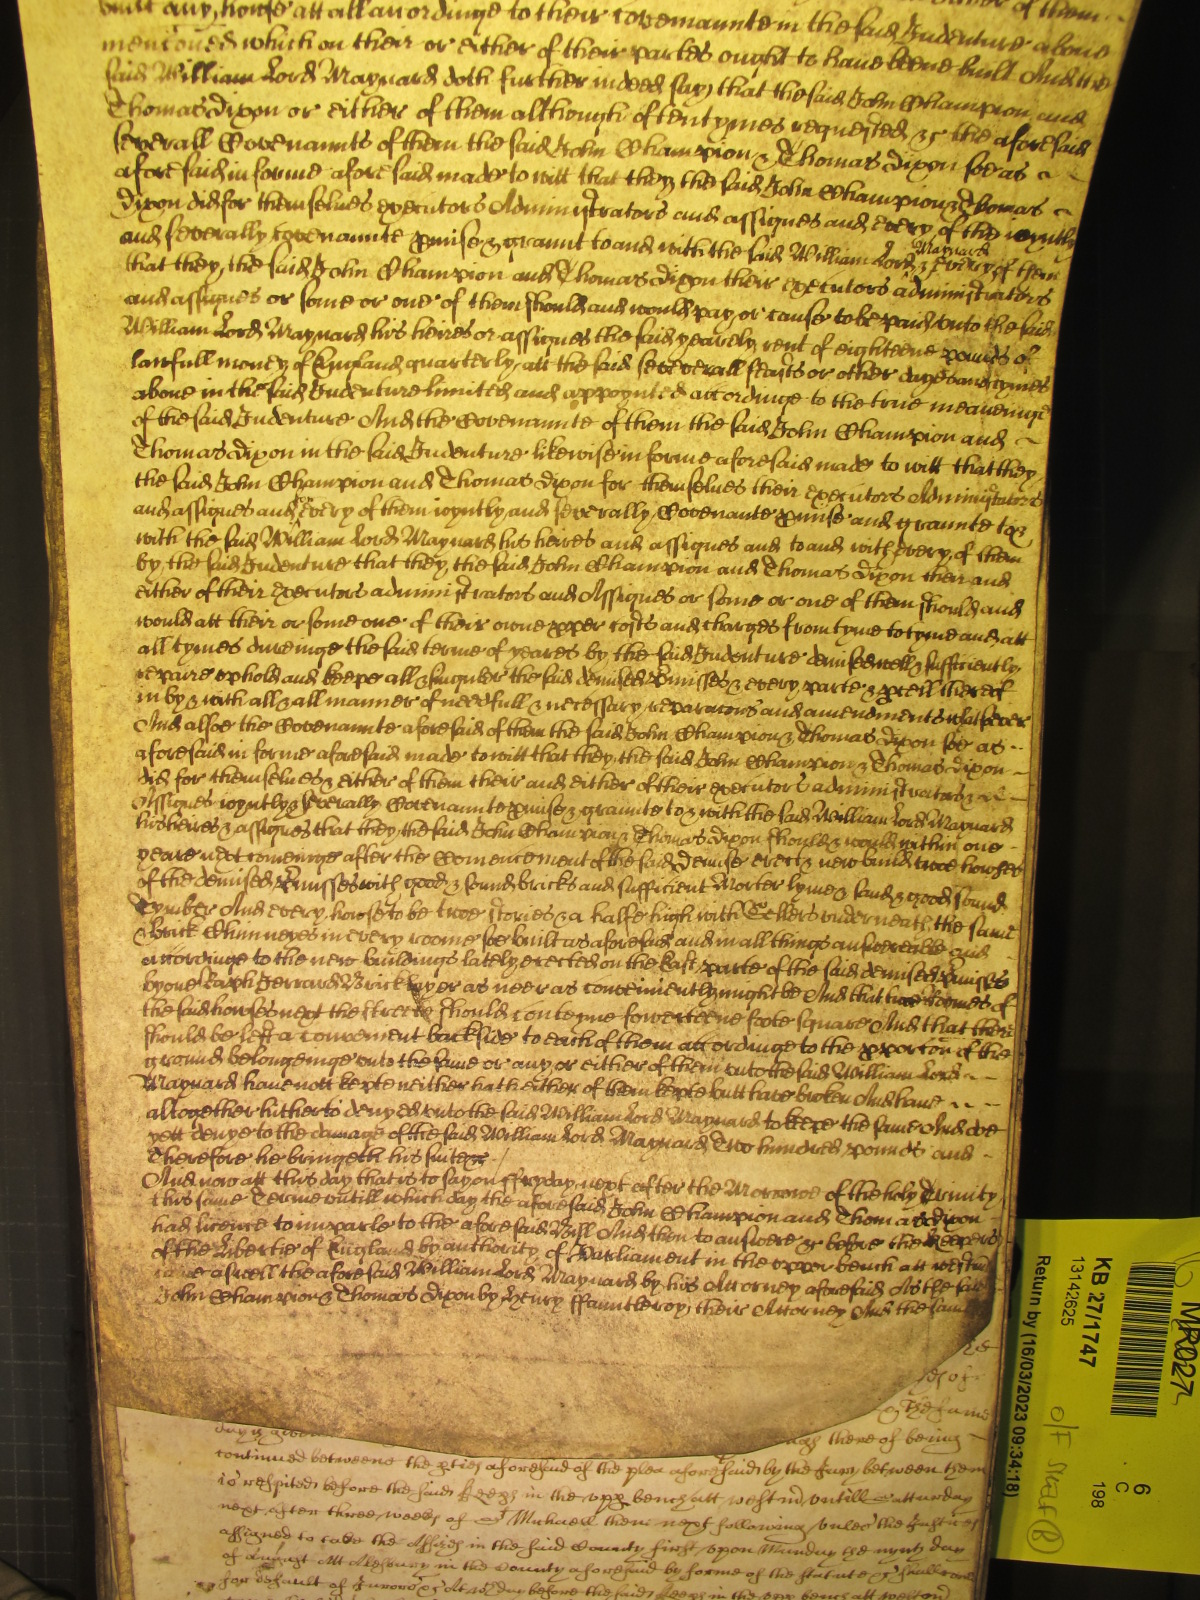 built any house att all accordinge to their covenaunte in the said Indenture above
mencioned which on their or either of their partes ought to have beene built And the
said William Lord Maynard doth further indeed say that the said John Champion and
Thomas Dixon or either of them although oftentymes requested &c the aforesaid
severall Covenannts of them the said John Champion & Thomas Dixon soe as
aforesaid in forme aforesaid made to witt that they the said John Champion & Thomas
Dixon did for themselues executors Administrators and assignes and every of the ioyntly
and severally covenaunte pmise & graunt to and with the said William Lord Maynard & every of them
that they the said John Champion and Thomas Dixon their executors administrators
and assignes or some or one of them should and would pay or cause to be paid vnto the said
William Lord Maynard his heires or assignes the said yearely rent of eighteene pounds of
lawfull money of England quarterly att the said severall feasts or other dayes and tymes
above in the said Indenture limited and appoynted accordinge to the true meaneinge
of the said Indenture And the Covenannte of them the said John Champion and
Thomas Dixon in the said Indenture likewise in forme aforesaid made to witt that they
the said John Champion and Thomas Dixon for themselues their executors Administrators
and assignes and for every of them ioyntly and severally Covenante pmise and graunte to &
with the said William Lord Maynard his heires and assignes and to and with every of them
by the said Indenture that they the said John Champion and Thomas Dixon their and
either of their executors administrators and Assignes or some or one of them should and
would att their or some one of their owne pper costs and charges from tyme to tyme and att
all tymes dureinge the said terme of yeares by the said Indenture demised well & sufficiently
repaire vphold and keepe all & singuler the said demised pmisses & every parte & pcell thereof
in by & with all & all manner of needfull & necessary reparacons and amendments whatsoever
And alsoe the Covenannte aforesaid of them the said John Champion & Thomas Dixon soe as
aforesaid in forme aforesaid made to witt that they the said John Champion & Thomas Dixon
did for themselues & either of them their and either of their executors administrators &
Assignes ioyntly & severally Covenannte pmise & graunte to & with the said William Lord Maynard
his heires & assignes that they the said John Champion & Thomas Dixon should & would within one
yeare next comeinge after the Comencement of the said Demise erect & new build twoe howses
of the demised pmisses with good & sound bricks and sufficient Morter lyme & sand & good sound
Tymber And every howse to be twoe stories & a halfe high with Cellers vnderneath the same
& brick Chimneyes in every roome soe built as aforesaid and in all things answereable and
accordinge to the new buildings lately erected on the East parte of the said demised pmisses
by one Raph Gerrard Bricklayer as neer as conveniently might be And that the roomes of
the said howses next the streete should conteyne fowerteene foote square And that there
should be left a convenient backside to each of them accordinge to the pporcon of the
ground belongeinge vnto the same or any or either of them vnto the said William Lord
Maynard have nott kepte neither hath either of them kepte butt have broken And have
altogether hitherto denyed vnto the said William Lord Maynard to keepe the same And doe
yett denye to the damage of the said William Lord Maynard Two hundred pounds and
Therefore he bringeth his suite &c
And now att this day that is to say on ffryday next after the Morrowe of the holy Trinity
this same Terme vntill which day the aforesaid John Champion and Thomas Dixon
had licence to imparle to the aforesaid Bill And then to answere &c before the keepers
of the Libertie of England by authority of Parliament in the vpper bench att Westm
came aswell the aforesaid William Lord Maynard by his Attorney aforesaid As the said
John Champion & Thomas Dixon by Henry ffauntleroy their Attorney And the same
the same
there of being
continued betweene the pties aforesaid of the plea aforesaid by the Jury betweene them
is respited before the said keeps in the vpp bench att westm vntill Satturday
next after three weeks of St Michaell then next following vnles the Justices
assigned to take the Assizes in the said County first vpon Munday the nynth day
of August Att Alesbury in the County aforesaid by forme of the statute &c shall come
for default of Jurors &c At wch day before the said keeps in the vpp bench att westm
MR027
6
C
KB 27/1747
198
13142625
Return by (16/03/2023 09:34:18)